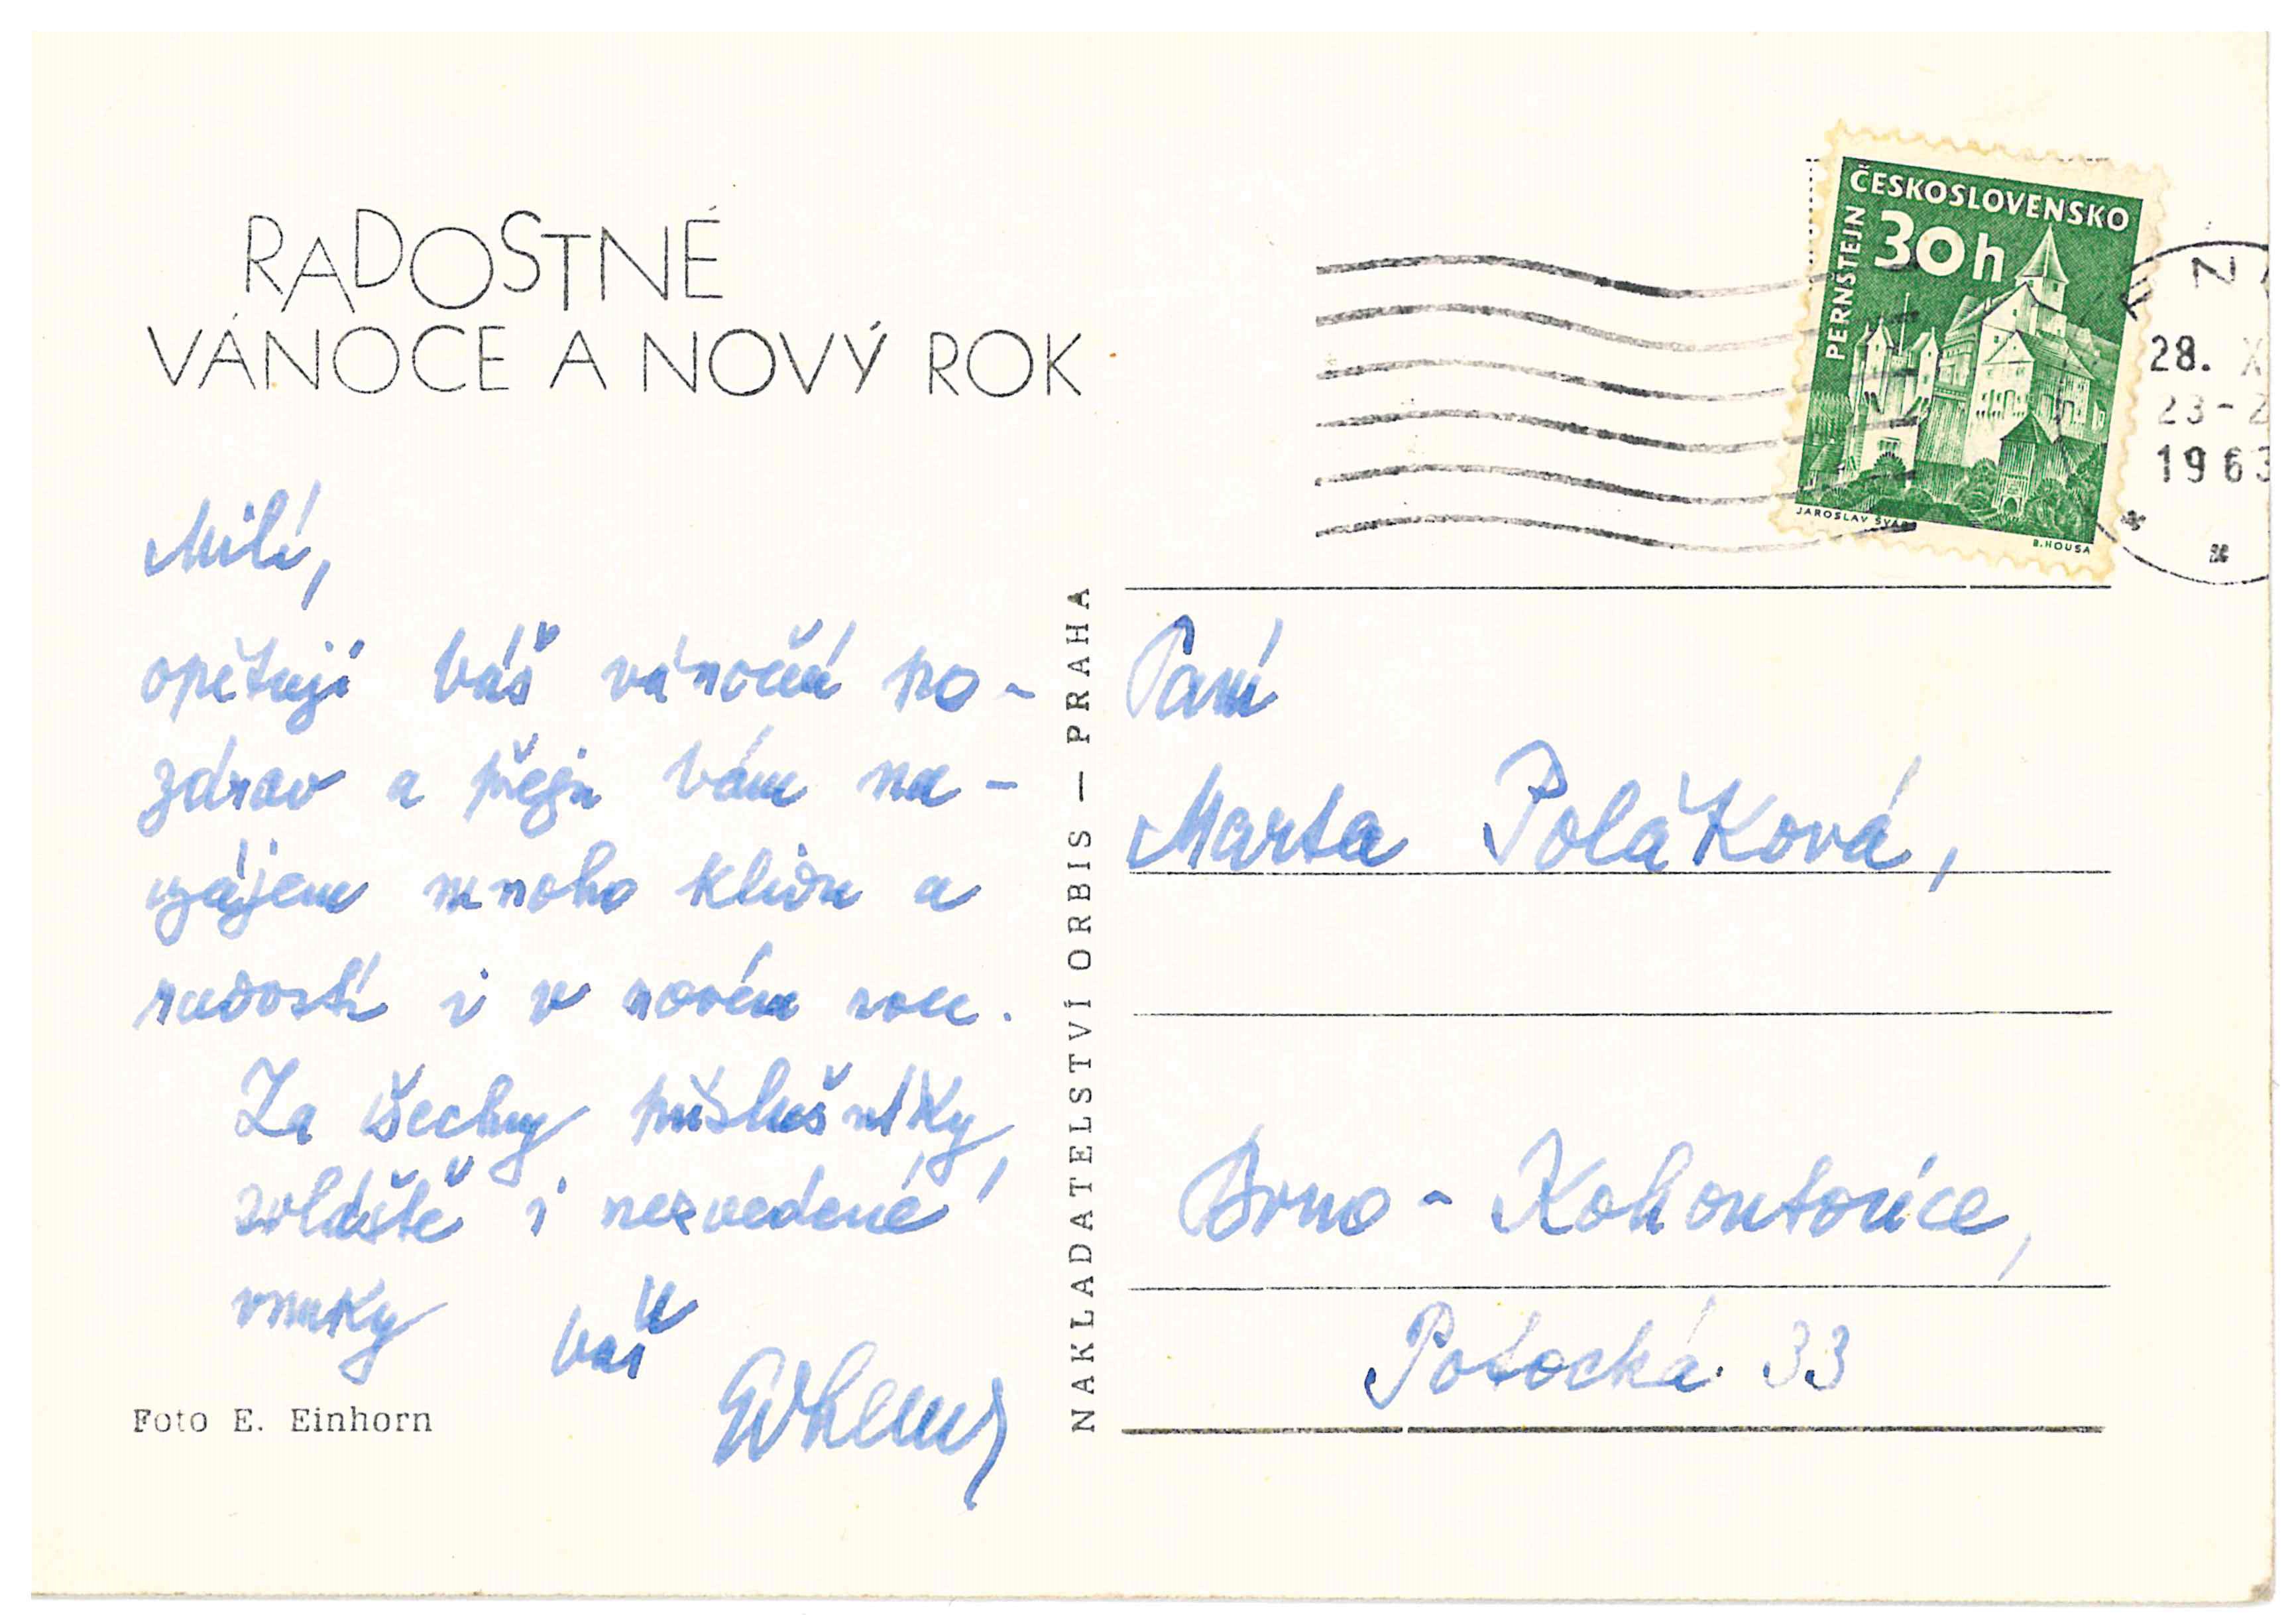 RADOSTNÉ
VÁNOCE A NOVÝ ROK
Milí,
opětuji Váš vánoční po-
zdrav a přeji Vám na-
vzájem mnoho klidu a
radosti i v novém roce.
Za všechny příslušníky,
zvláště i nezvedené
vnuky Váš
Foto E. Einhorn
NAKLADATELSTVÍ ORBIS — PRAHA
ČESKOSLOVENSKO
PERNŠTEJN
30h
JAROSLAV ŠVÁB
B. HOUSA
28. X
23-2
1963
Paní
Marta Poláková,
Brno - Kohoutovice,
Potocká 33